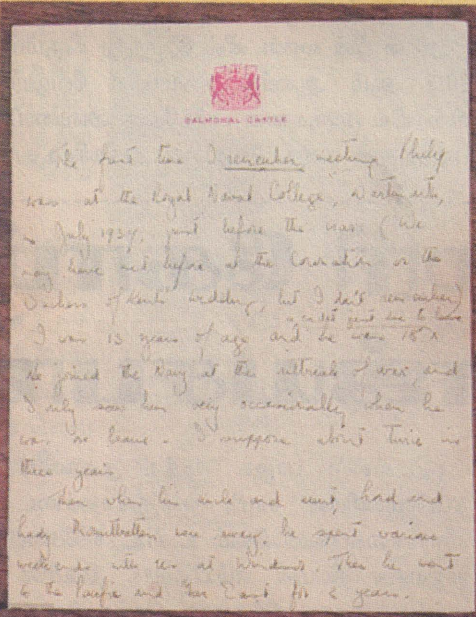 BALMORAL CASTLE
The first time I remember meeting Philip
was at the Royal Naval College, Dartmouth,
in July 1939, just before the war. (We
may have met before at the Coronation or the
Duchess of Kent's wedding, but I don't remember)
I was 13 years of age and he was 18 a cadet just due to leave
He joined the Navy at the outbreak of war, and
I only saw him very occasionally when he
was on leave - I suppose about twice in
three years.
Then when his uncle and aunt, Lord and
Lady Mountbatten were away, he spent various
weekends with us at Windsor. Then he went
to the Pacific and Far East for 2 years.